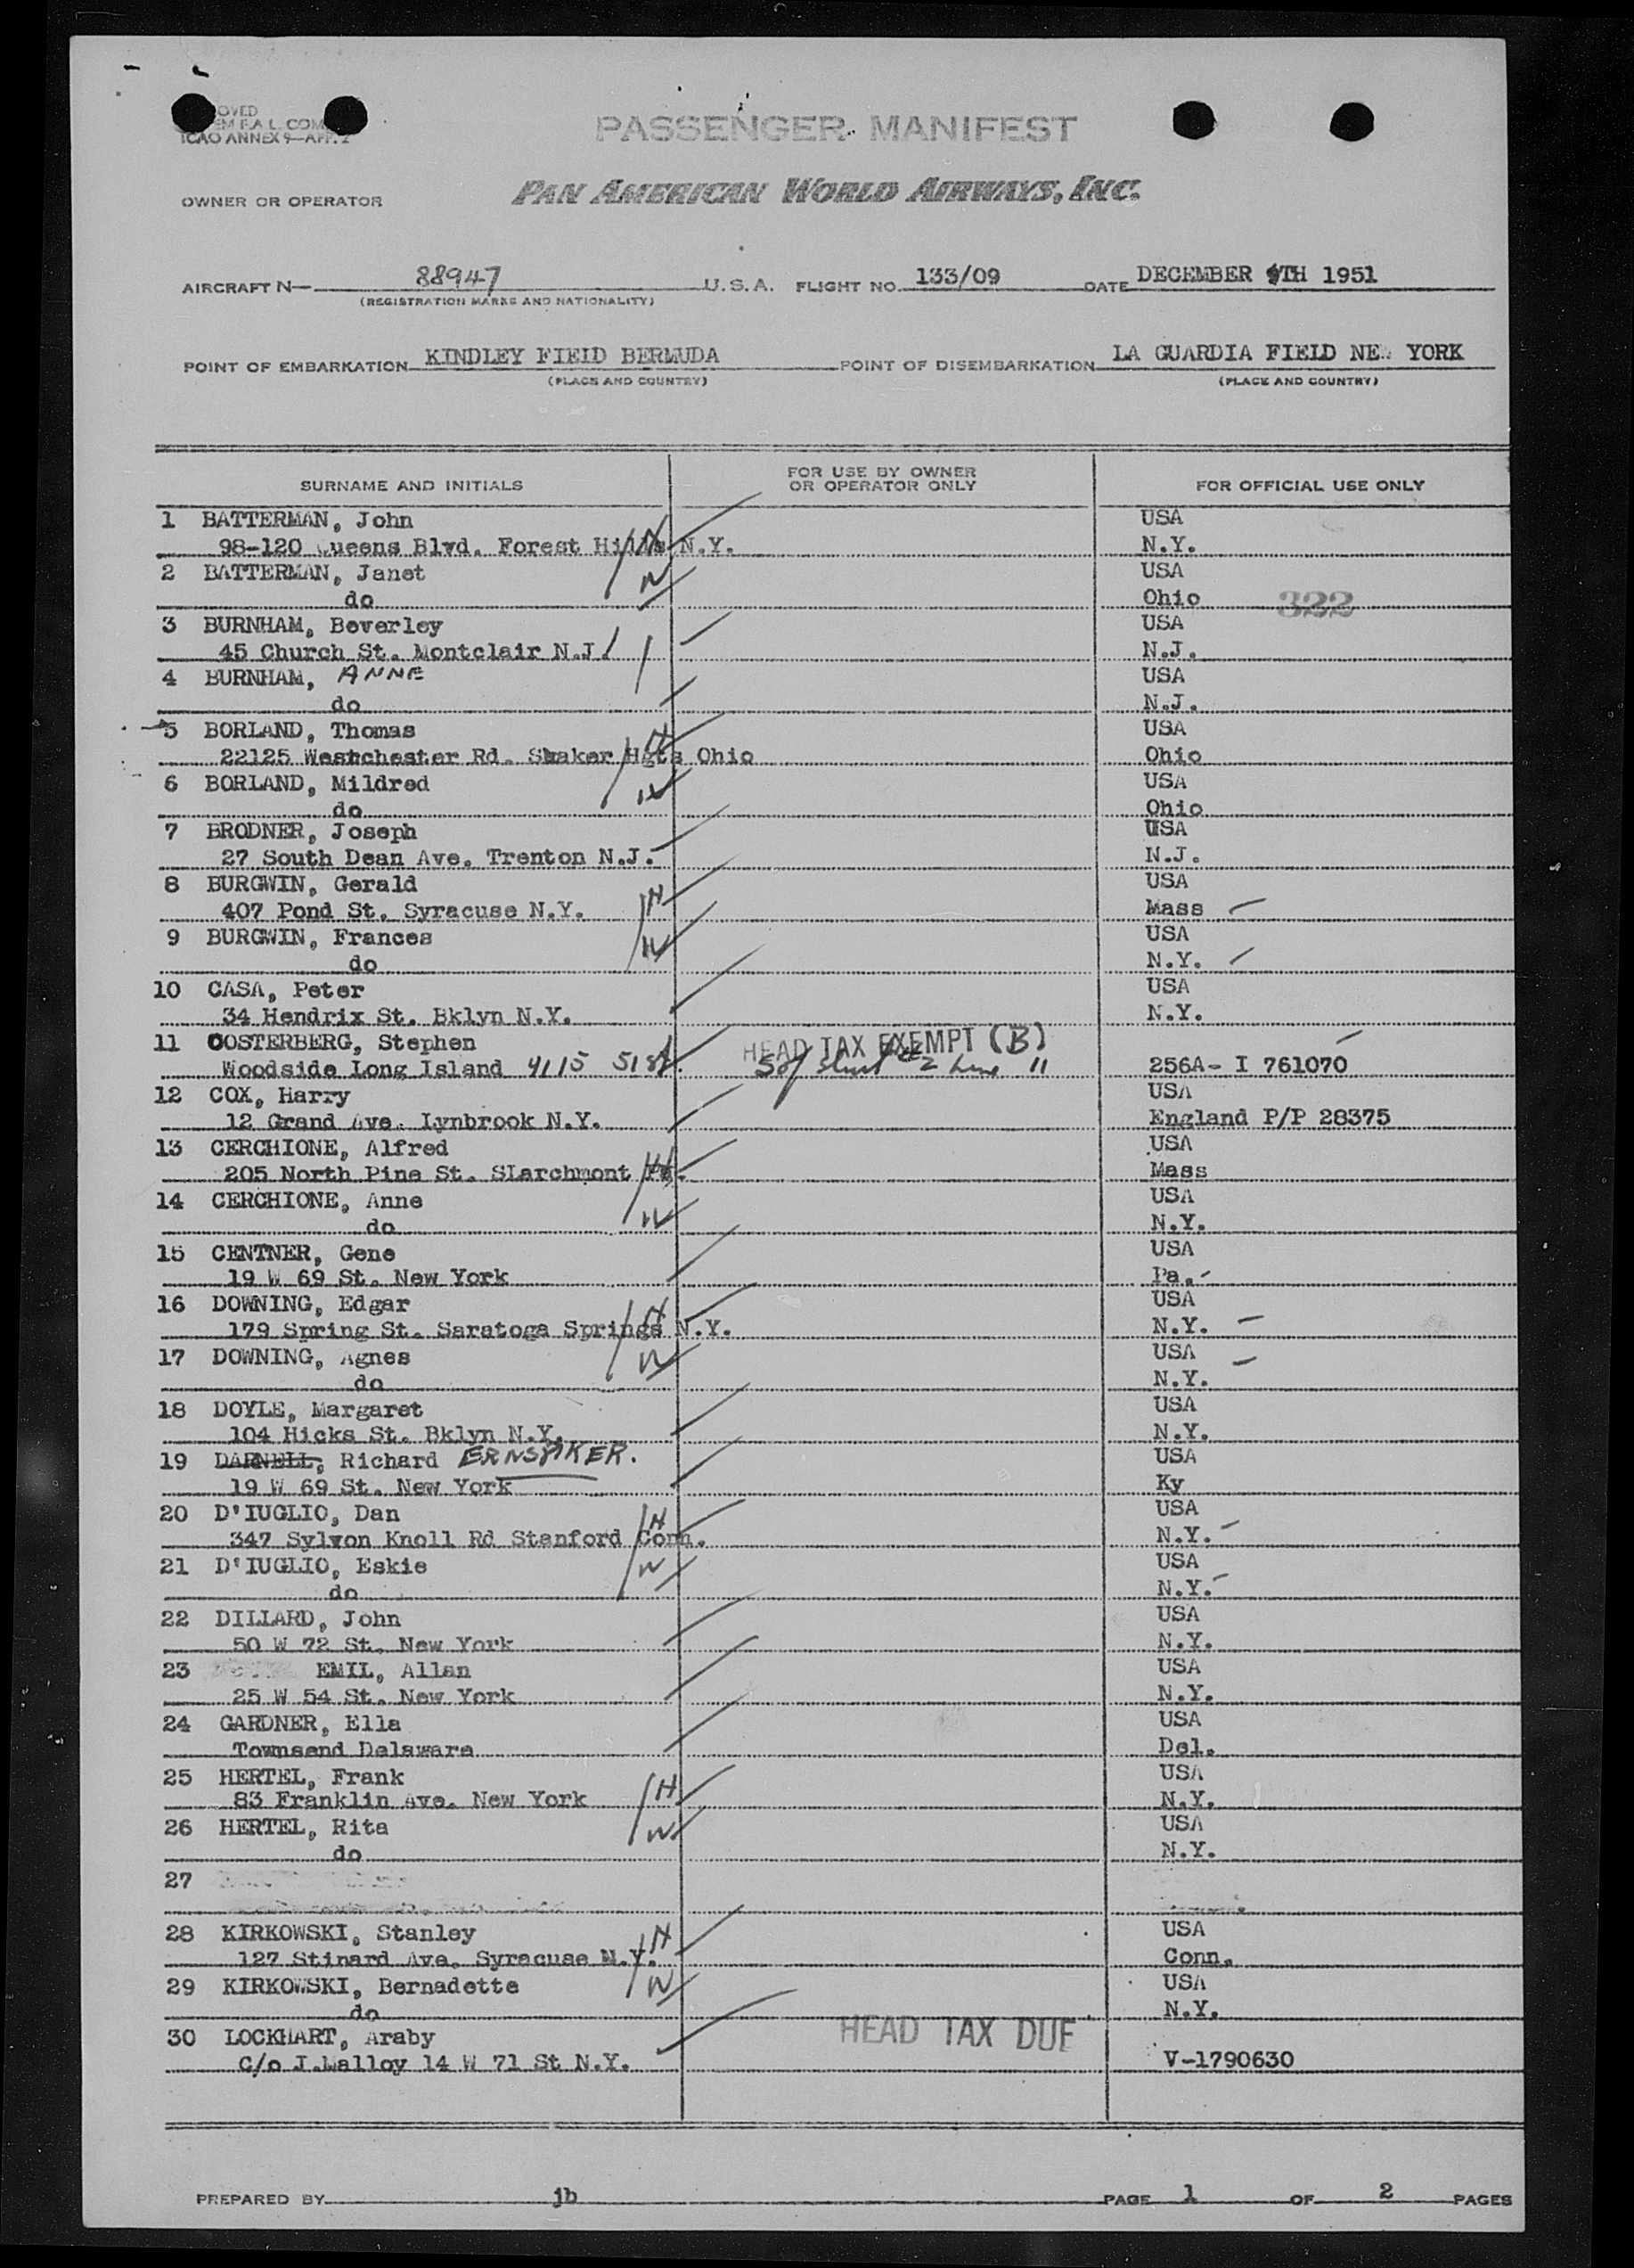 OVED
EM F.A.L. COM
ICAO ANNEX 9—APP. 2
PASSENGER MANIFEST
OWNER OR OPERATOR PAN AMERICAN WORLD AIRWAYS, INC.
AIRCRAFT N— 88947 U.S.A. FLIGHT NO. 133/09 DATE DECEMBER 9TH 1951
(REGISTRATION MARKS AND NATIONALITY)
POINT OF EMBARKATION KINDLEY FIELD BERMUDA POINT OF DISEMBARKATION LA GUARDIA FIELD NEW YORK
(PLACE AND COUNTRY) (PLACE AND COUNTRY)
SURNAME AND INITIALS FOR USE BY OWNER OR OPERATOR ONLY FOR OFFICIAL USE ONLY
1 BATTERMAN, John USA
98-120 Queens Blvd. Forest Hills N.Y. H N.Y.
2 BATTERMAN, Janet W USA
do Ohio 322
3 BURNHAM, Beverley USA
45 Church St. Montclair N.J. N.J.
4 BURNHAM, ANNE USA
do N.J.
5 BORLAND, Thomas H USA
22125 Westchester Rd. Shaker Hgts Ohio Ohio
6 BORLAND, Mildred W USA
do Ohio
7 BRODNER, Joseph USA
27 South Dean Ave. Trenton N.J. N.J.
8 BURGWIN, Gerald H USA
407 Pond St. Syracuse N.Y. Mass
9 BURGWIN, Frances W USA
do N.Y.
10 CASA, Peter USA
34 Hendrix St. Bklyn N.Y. N.Y.
11 OOSTERBERG, Stephen HEAD TAX EXEMPT (B)
Woodside Long Island 4115 51 St. Line 11 256A- I 761070
12 COX, Harry USA
12 Grand Ave. Lynbrook N.Y. England P/P 28375
13 CERCHIONE, Alfred H USA
205 North Pine St. SLarchmont Mass
14 CERCHIONE, Anne W USA
do N.Y.
15 CENTNER, Gene USA
19 W 69 St. New York Pa.
16 DOWNING, Edgar H USA
179 Spring St. Saratoga Springs N.Y. N.Y.
17 DOWNING, Agnes W USA
do N.Y.
18 DOYLE, Margaret USA
104 Hicks St. Bklyn N.Y. N.Y.
19 DARNELL, Richard ERNSPIKER. USA
19 W 69 St. New York Ky
20 D'IUGLIO, Dan H USA
347 Sylvon Knoll Rd Stanford Conn. N.Y.
21 D'IUGLIO, Eskie W USA
do N.Y.
22 DILLARD, John USA
50 W 72 St. New York N.Y.
23 EMIL, Allan USA
25 W 54 St. New York N.Y.
24 GARDNER, Ella USA
Townsend Delaware Del.
25 HERTEL, Frank H USA
83 Franklin Ave. New York N.Y.
26 HERTEL, Rita W USA
do N.Y.
27
28 KIRKOWSKI, Stanley H USA
127 Stinard Ave. Syracuse N.Y. Conn.
29 KIRKOWSKI, Bernadette W USA
do N.Y.
30 LOCKHART, Araby HEAD TAX DUE
C/o J.Malloy 14 W 71 St N.Y. V-1790630
PREPARED BY jb PAGE 1 OF 2 PAGES